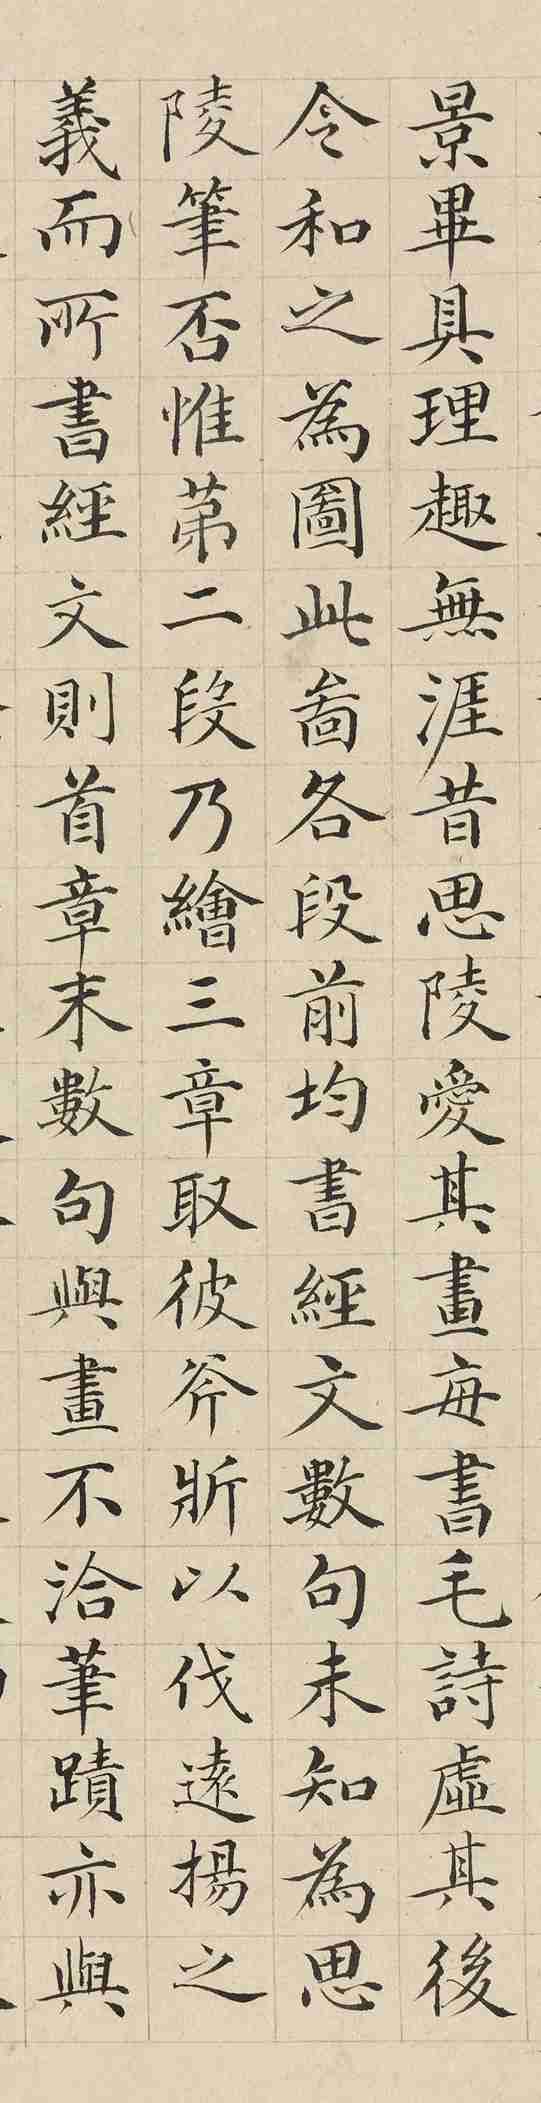 景畢具理趣無涯昔思陵愛其畫每書毛詩虛其後
令和之為圖此啚各段前均書經文數句未知為思
陵筆否惟苐二段乃繪三章取彼斧斨以伐遠揚之
義而所書經文則首章末數句與畫不洽筆蹟亦與